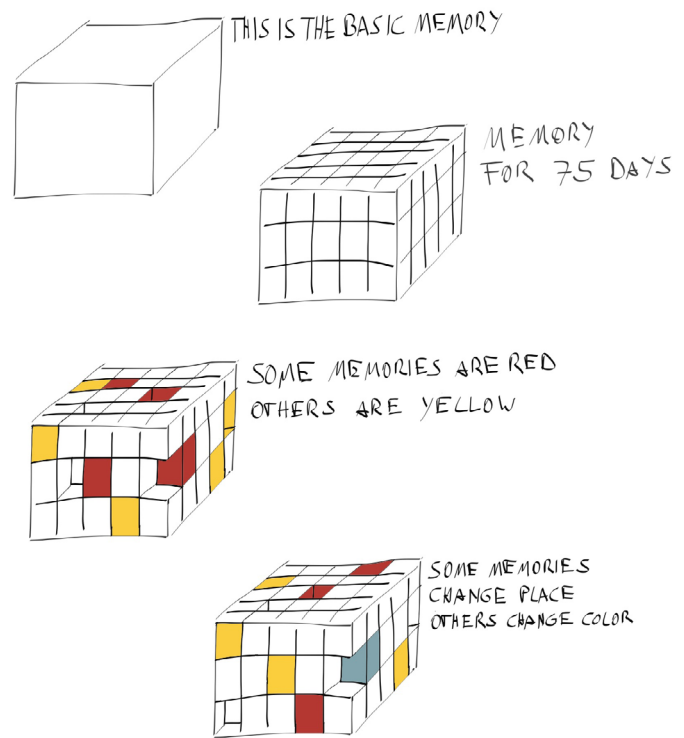 THIS IS THE BASIC MEMORY
MEMORY
FOR 75 DAYS
SOME MEMORIES ARE RED
OTHERS ARE YELLOW
SOME MEMORIES
CHANGE PLACE
OTHERS CHANGE COLOR